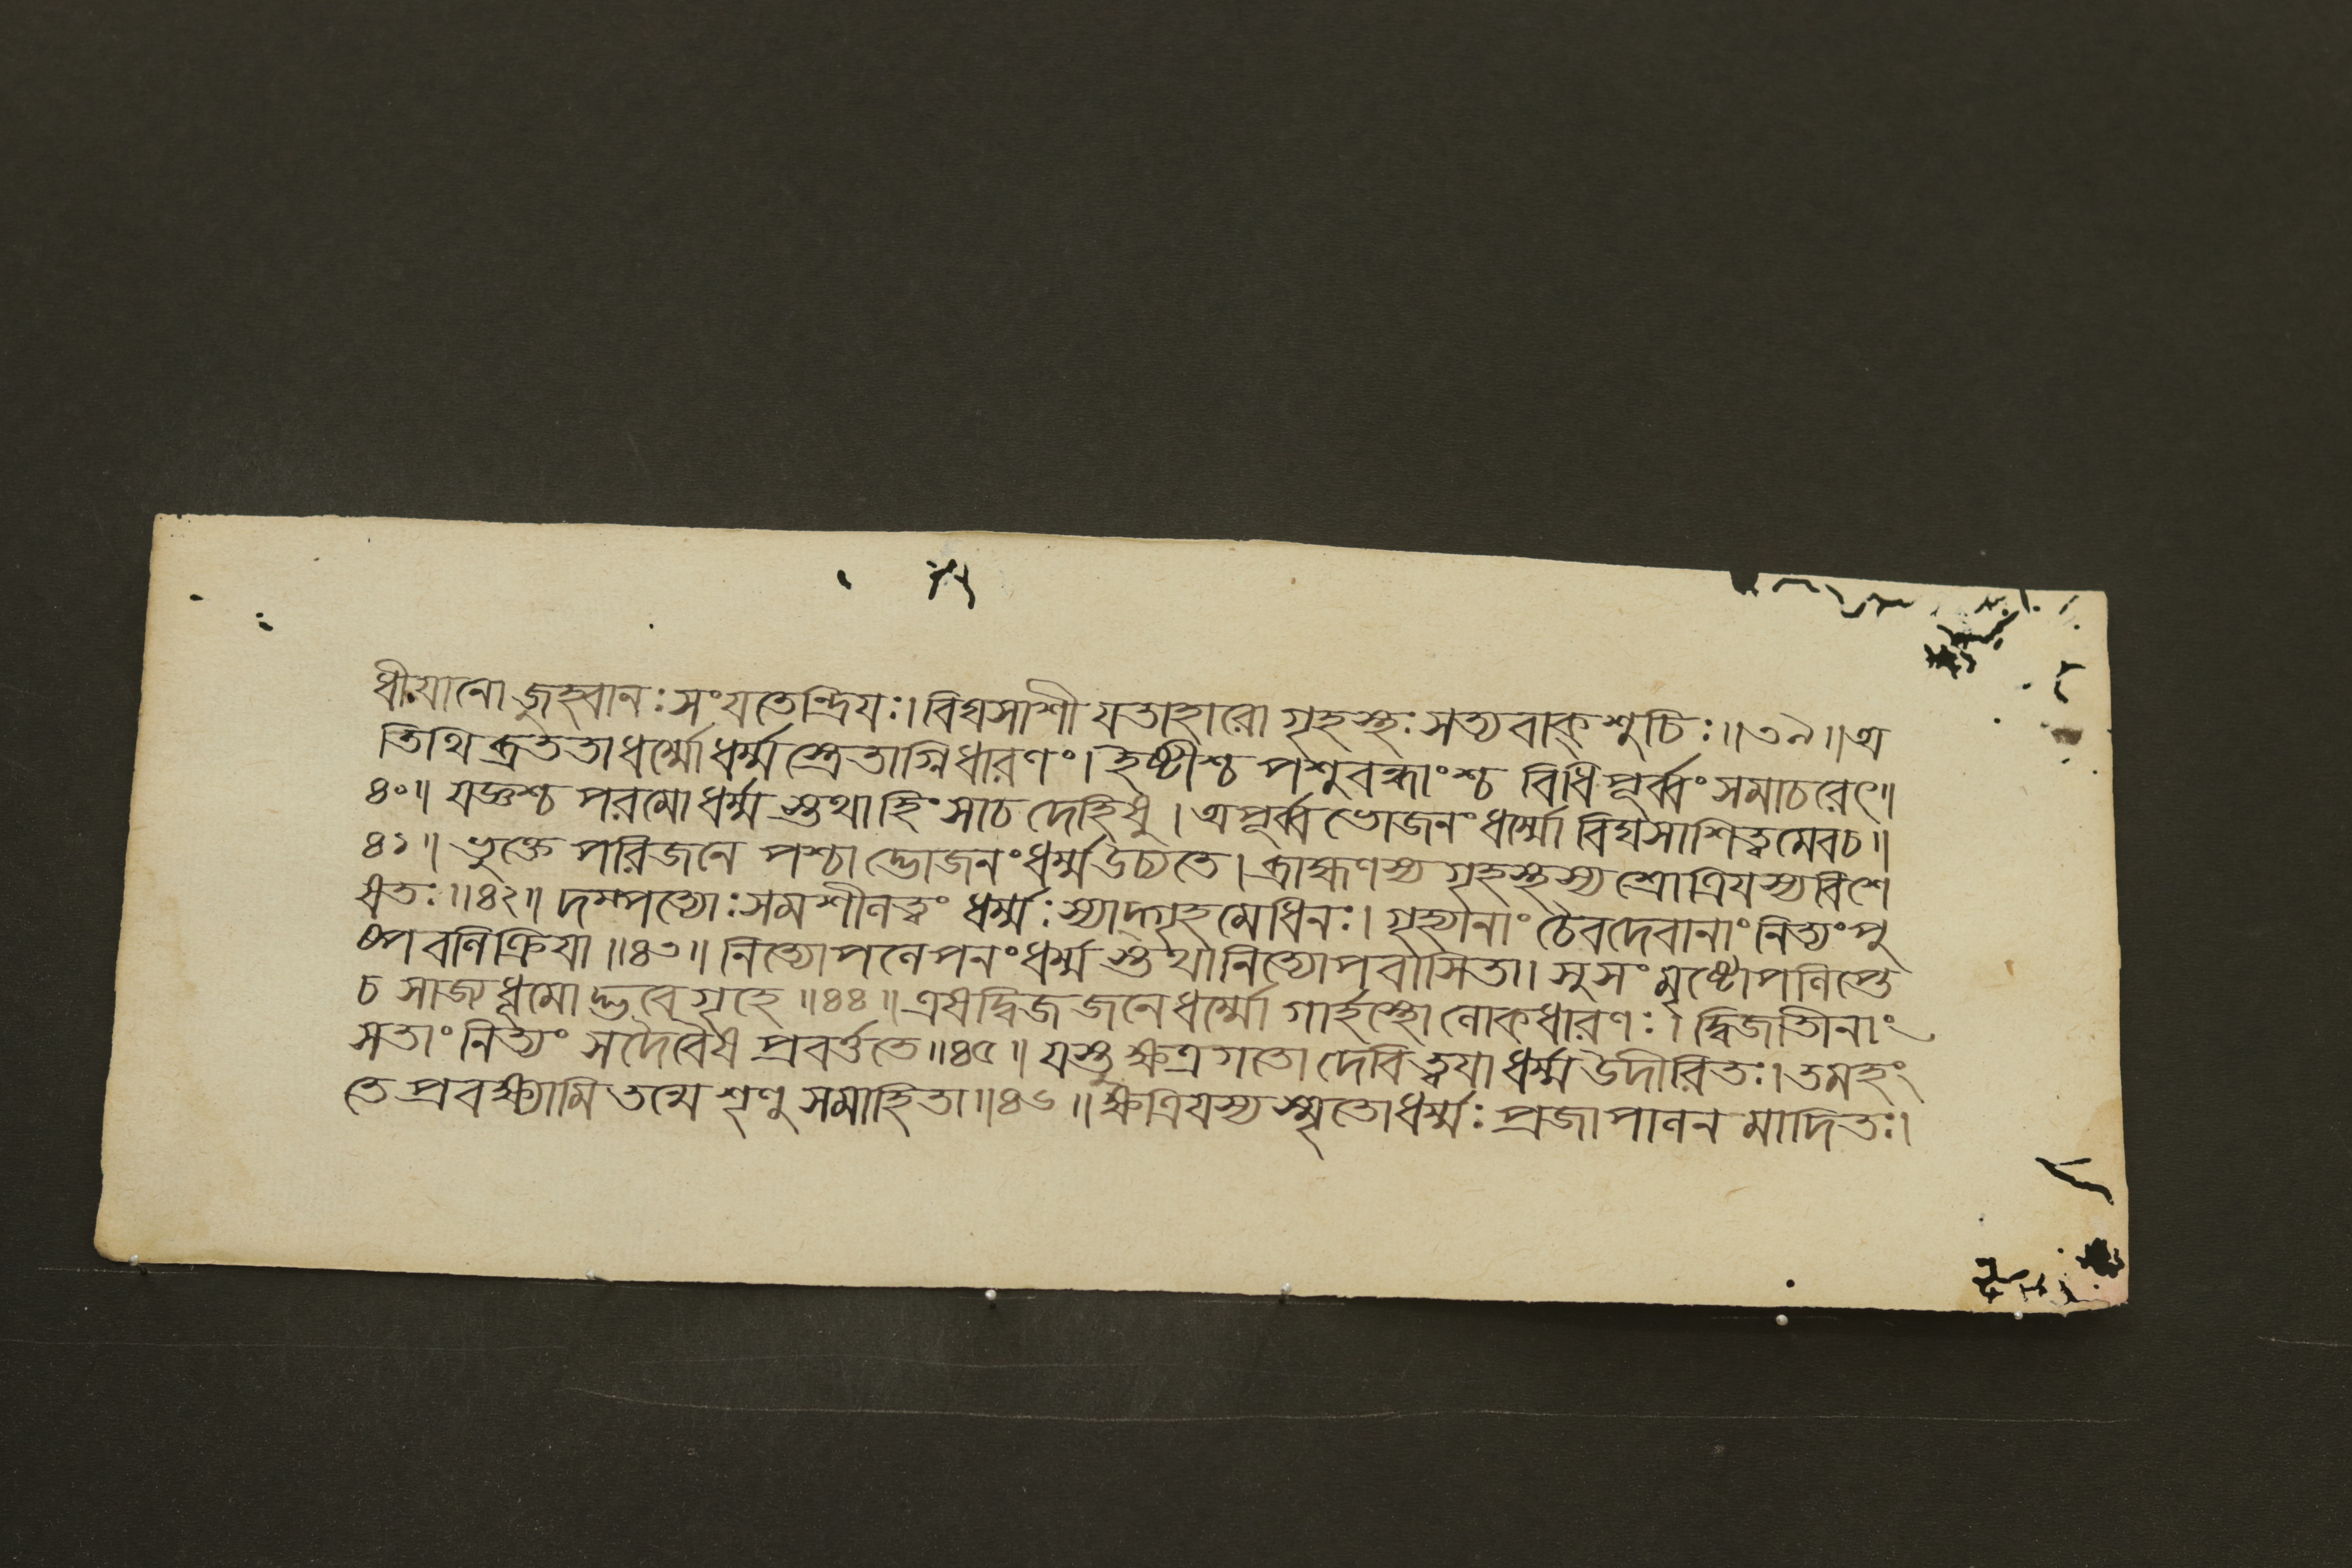 ধীয়ানো জুহ্বানঃ সংযতেন্দ্রিযঃ। বিঘসাশী যতাহারো গৃহস্থঃ সত্যবাক্শুচিঃ॥৩৯॥অ
তিথিব্রততাধর্ম্মোধর্ম্মস্ত্রেতাগ্নিধারণং। ইষ্টীশ্চ পশুবন্ধাংশ্চ বিধিপূর্ব্বং সমাচরেৎ॥
৪০॥ যজ্ঞশ্চ পরমোধর্ম্মস্তথাহিংসাচ দেহিষু। অপূর্ব্বভোজনংধর্ম্মো বিঘসাশিত্বমেবচ॥
৪১॥ ভুক্তে পরিজনে পশ্চাদ্ভোজনংধর্ম্মউচ্যতে। ব্রাহ্মণস্য গৃহস্থস্য শ্রোত্রিযস্যবিশে
ষতঃ॥৪২॥ দম্পত্যোঃসমশীলত্বং ধর্ম্মঃস্যাদ্গৃহমেধিনঃ। গৃহ্যানাং চৈবদেবানাং নিত্যংপু
ষ্পবলিক্রিযা॥৪৩॥ নিত্যোপলেপনংধর্ম্মস্তথানিত্যোপবাসিতা। সুসংমৃষ্টোপলিপ্তে
চ সাজ্যধূমোদ্ভবে গৃহে॥৪৪॥ এষদ্বিজজনেধর্ম্মো গার্হস্থ্যোলোকধারণঃ। দ্বিজাতীনাং
সতাংনিত্যং সদৈবৈষ প্রবর্ত্ততে॥৪৫॥ যস্তুক্ষত্রগতোদেবিত্বযাধর্ম্মউদীরিতঃ। তমহং
তে প্রবক্ষ্যামি তন্মে শৃণু সমাহিতা॥৪৬॥ ক্ষত্রিযস্য স্মৃতোধর্ম্মঃ প্রজাপালনমাদিতঃ।